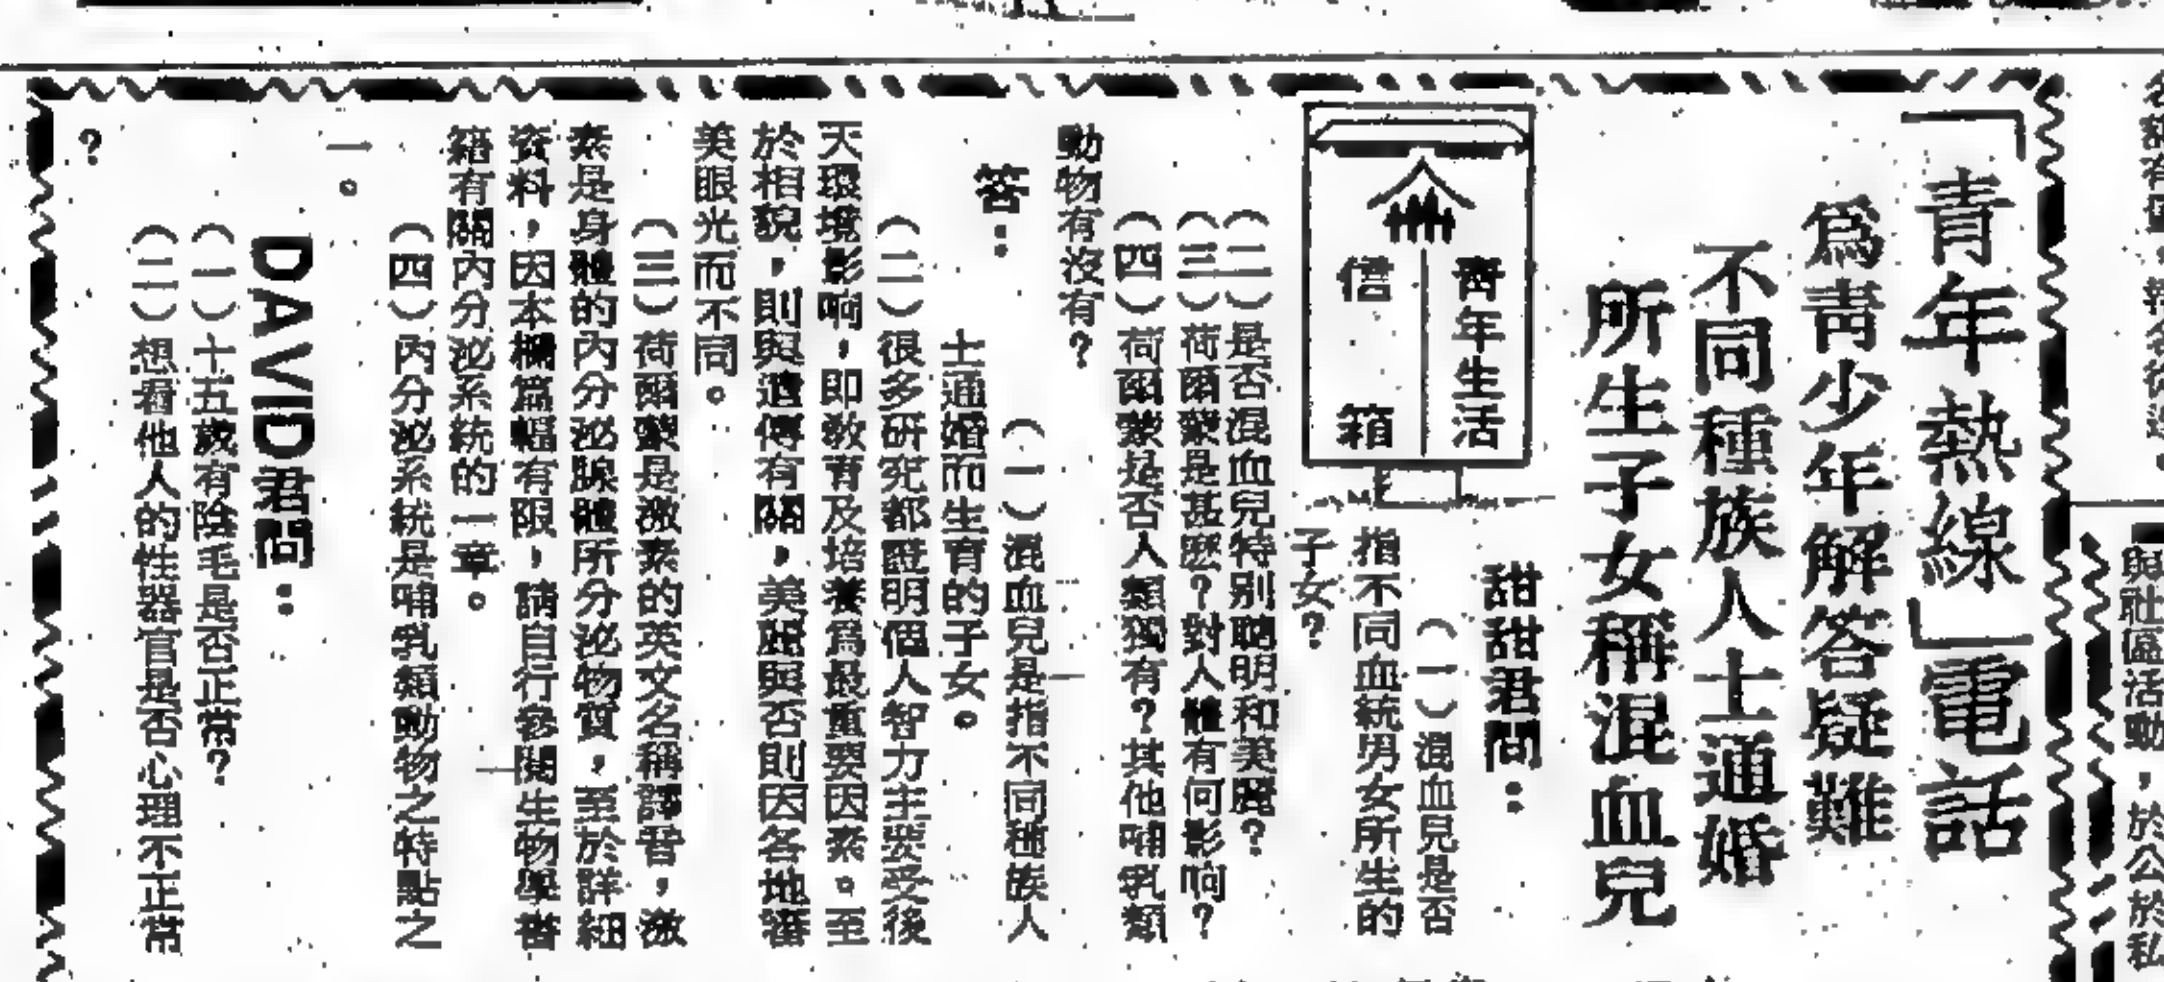 「青年熱線」電話
爲青少年解答疑難
不同種族人士通婚
所生子女稱混血兒
靑年生活
信箱
甜甜君問：
（一）混血兒是否
指不同血統男女所生的
子女？
（二）是否混血兒特别聰明和美麗？
（三）荷爾蒙是甚麽？對人體有何影响？
（四）荷爾蒙是否人類獨有？其他哺乳類
動物有沒有？
答：
（一）混血兒是指不同種族人
士通婚而生育的子女。
（二）很多研究都證明個人智力主要受後
天環境影响，即敎育及培養爲最重要因素。至
於相貌，則與遺傳有關，美麗與否則因各地審
美眼光而不同。
（三）荷爾蒙是激素的英文名稱譯音，激
素是身體的內分泌腺體所分泌物質，至於詳細
資料，因本欄篇幅有限，請自行參閱生物學書
籍有關內分泌系統的一章。
（四）內分泌系統是哺乳類動物之特點之
一。
DAVID君問：
（一）十五歲有陰毛是否正常？
（二）想看他人的性器官是否心理不正常
？
與社區活動，於公於私